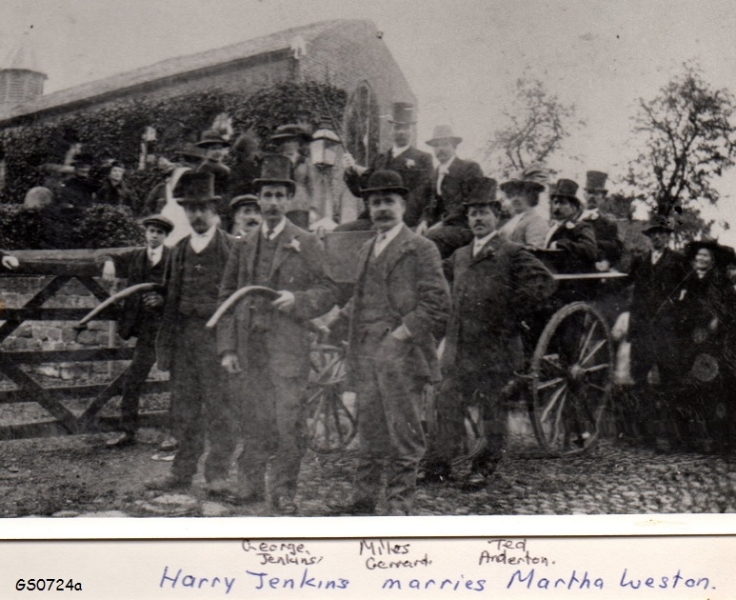 George Miles Ted
Jenkins, Gerrard. Anderton.
GS0724a Harry Jenkins marries Martha Weston.